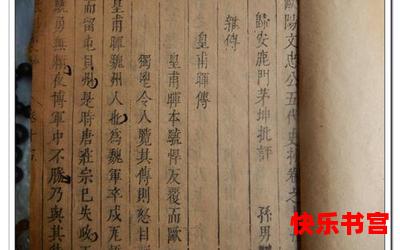 歐陽文忠公五代史抄卷之
歸安鹿門茅坤批評 孫男
雜傳
皇甫暉傳
皇甫暉本驍悍反覆而歐
令人覽其傳則怒目
皇甫暉魏州人也為魏軍卒戍瓦
而留屯貝州是時唐莊宗已失政
驍勇無賴夜博軍中不勝乃與其
快乐书宫